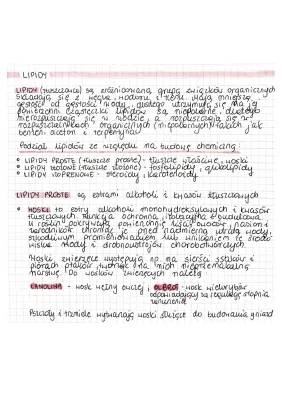 LIPIDY
LIPIDY (tłuszczowce) są zróżnicowaną grupą związków organicznych
składają się z węgla, wodoru i tlenu. Mają mniejszą
gęstość od gęstości wody, dlatego utrzymują się na jej
powierzchni. Cząsteczki lipidów są niepolarne, dlatego
nie rozpuszczają się w wodzie, a rozpuszczają się w
rozpuszczalnikach organicznych (niepolarnych) takich jak
benzen, aceton i terpentyna.
Podział lipidów ze względu na budowę chemiczną:
LIPIDY PROSTE (tłuszcze proste) - tłuszcze właściwe, woski
LIPIDY ZŁOŻONE (tłuszcze złożone) - fosfolipidy, glikolipidy
LIPIDY IZOPRENOWE - steroidy i karotenoidy
LIPIDY PROSTE są estrami alkoholi i kwasów tłuszczowych
WOSKI - to estry alkoholi monohydroksylowych i kwasów
tłuszczowych. Funkcja ochronna, izolacyjna i budulcowa.
U roślin pokrywają powierzchnię liści, owoców, nasion i
chronią je przed nadmierną utratą wody,
szkodliwym promieniowaniem lub wnikaniem ze środo
wiska wody i drobnoustrojów chorobotwórczych.
Woski zwierzęce występują np. na sierści ssaków i
piórach ptaków, tworząc na nich nieprzemakalną
warstwę. Do wosków zwierzęcych należą
LANOLINA - wosk wełny owczej i OLBROT - wosk wielorybów
odpowiadający za regulację stopnia
zanurzenia
Pszczoły i trzmiele wytwarzają woski służące do budowania gniazd